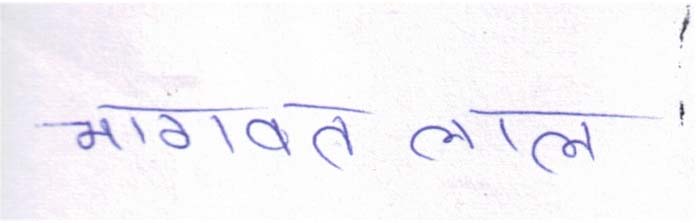 भागवत लाल